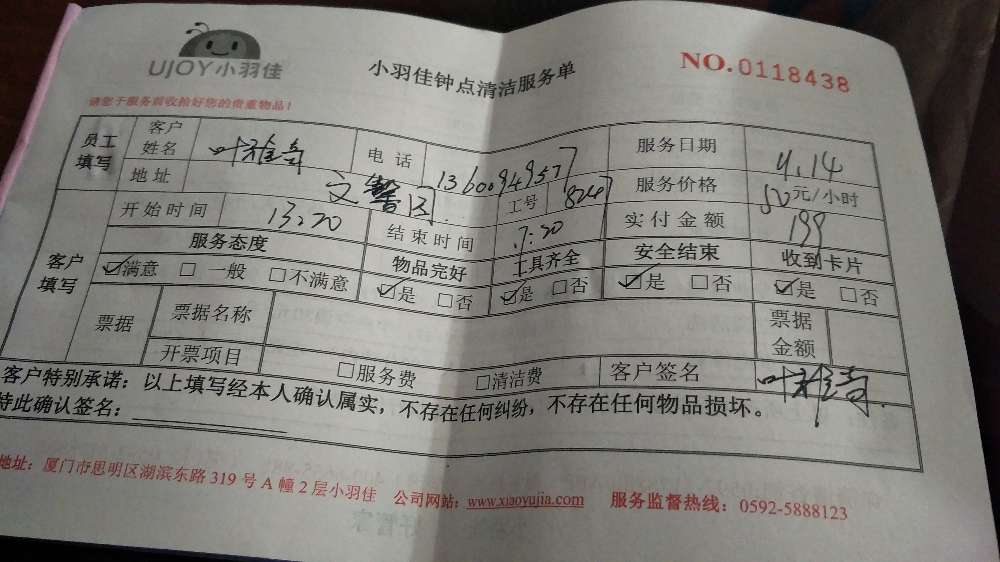 UJOY小羽佳
小羽佳钟点清洁服务单
NO.0118438
请您于服务前收拾好您的贵重物品！
员工填写 客户姓名 叶雅奇 电话 1360094957 服务日期 4.14
地址 文馨园 工号 8247 服务价格 50元/小时
客户填写 开始时间 13:20 结束时间 17:20 实付金额 199
服务态度 物品完好 工具齐全 安全结束 收到卡片
☑满意 □一般 □不满意 ☑是 □否 ☑是 □否 ☑是 □否 ☑是 □否
票据 票据名称 票据金额
开票项目 □服务费 □清洁费 客户签名 叶雅奇
客户特别承诺：以上填写经本人确认属实，不存在任何纠纷，不存在任何物品损坏。
特此确认签名：
地址：厦门市思明区湖滨东路319号A幢2层小羽佳 公司网站：www.xiaoyujia.com 服务监督热线：0592-5888123